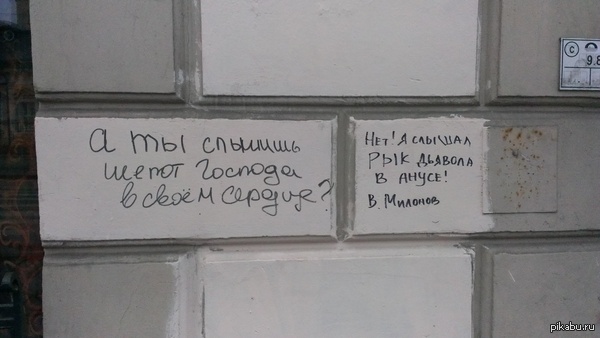 а ты слышишь
шепот Господа
в своём сердце?
Нет! Я слышал
рык дьявола
в анусе!
В. Милонов
С
9.8
pikabu.ru